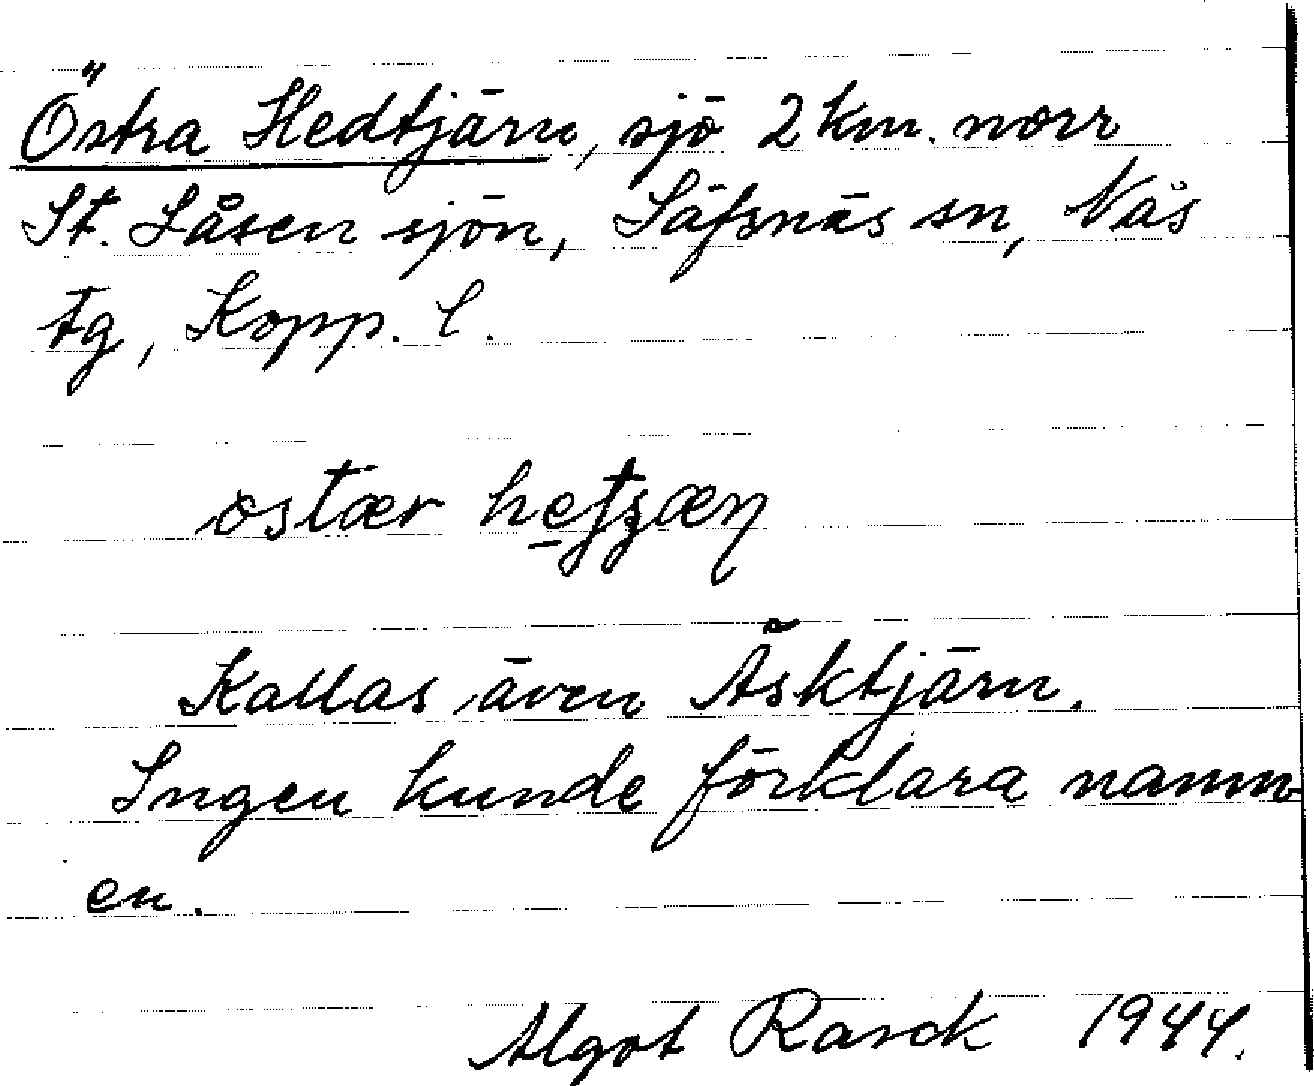 Östra Hedtjärn, sjö 2 km. norr
St. Låsen sjön, Säfsnäs sn, Nås
tg, Kopp. l.
ostær
Kallas även Äsktjärn.
Ingen kunde förklara namn-
en.
Algot Rask 1944.